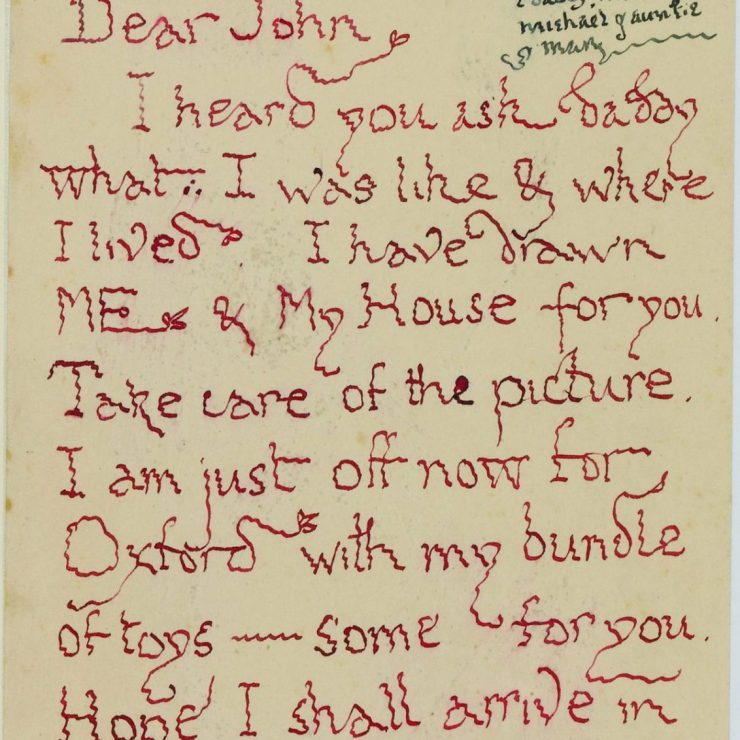 Dear John
michael & auntie
mary
I heard you ask daddy
what I was like & where
I lived. I have drawn
ME & My House for you.
Take care of the picture.
I am just off now for
Oxford with my bundle
of toys — some for you.
Hope I shall arrive in